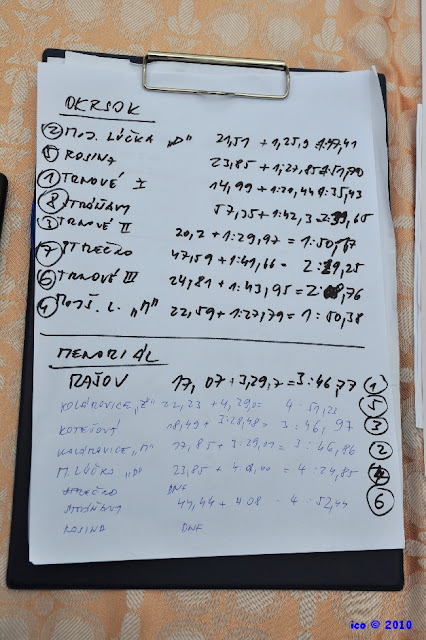 OKRSOK
② MOJ. LÚČKA „D" 21,51 + 1,25,9 1:47,41
⑤ ROSINA 23,85 + 1,27,85 1:51,70
① TRNOVÉ I 14,99 + 1:20,44 1:35,43
⑧ STRÁŇAVY 57,35 + 1:42,3 65
③ TRNOVÉ II 20,2 + 1:29,97 = 1:50,17
⑦ STREČNO 47,59 + 1:41,66 = 2:29,25
⑥ TRNOVÉ III 24,81 + 1:43,95 = 2:08,76
④ MOJŠ. L. „M" 22,59 + 1:27,79 = 1:50,38
MEMORIÁL
RAŠOV 17,07 + 3,29,7 = 3:46,77 ①
KOLÁROVICE „Ž" 22,23 + 4,29,0 = 4:51,23 ⑤
KOTEŠOVÁ 18,49 + 3:28,48 = 3:46,97 ③
KOLÁROVICE „M" 17,85 + 3:29,01 = 3:46,86 ②
M. LÚČKA „D" 23,85 + 4:01,00 = 4:24,85 ④
STREČNO DNF
STRÁŇAVY 44,44 + 4:08 = 4:52,44 ⑥
ROSINA DNF
ico © 2010